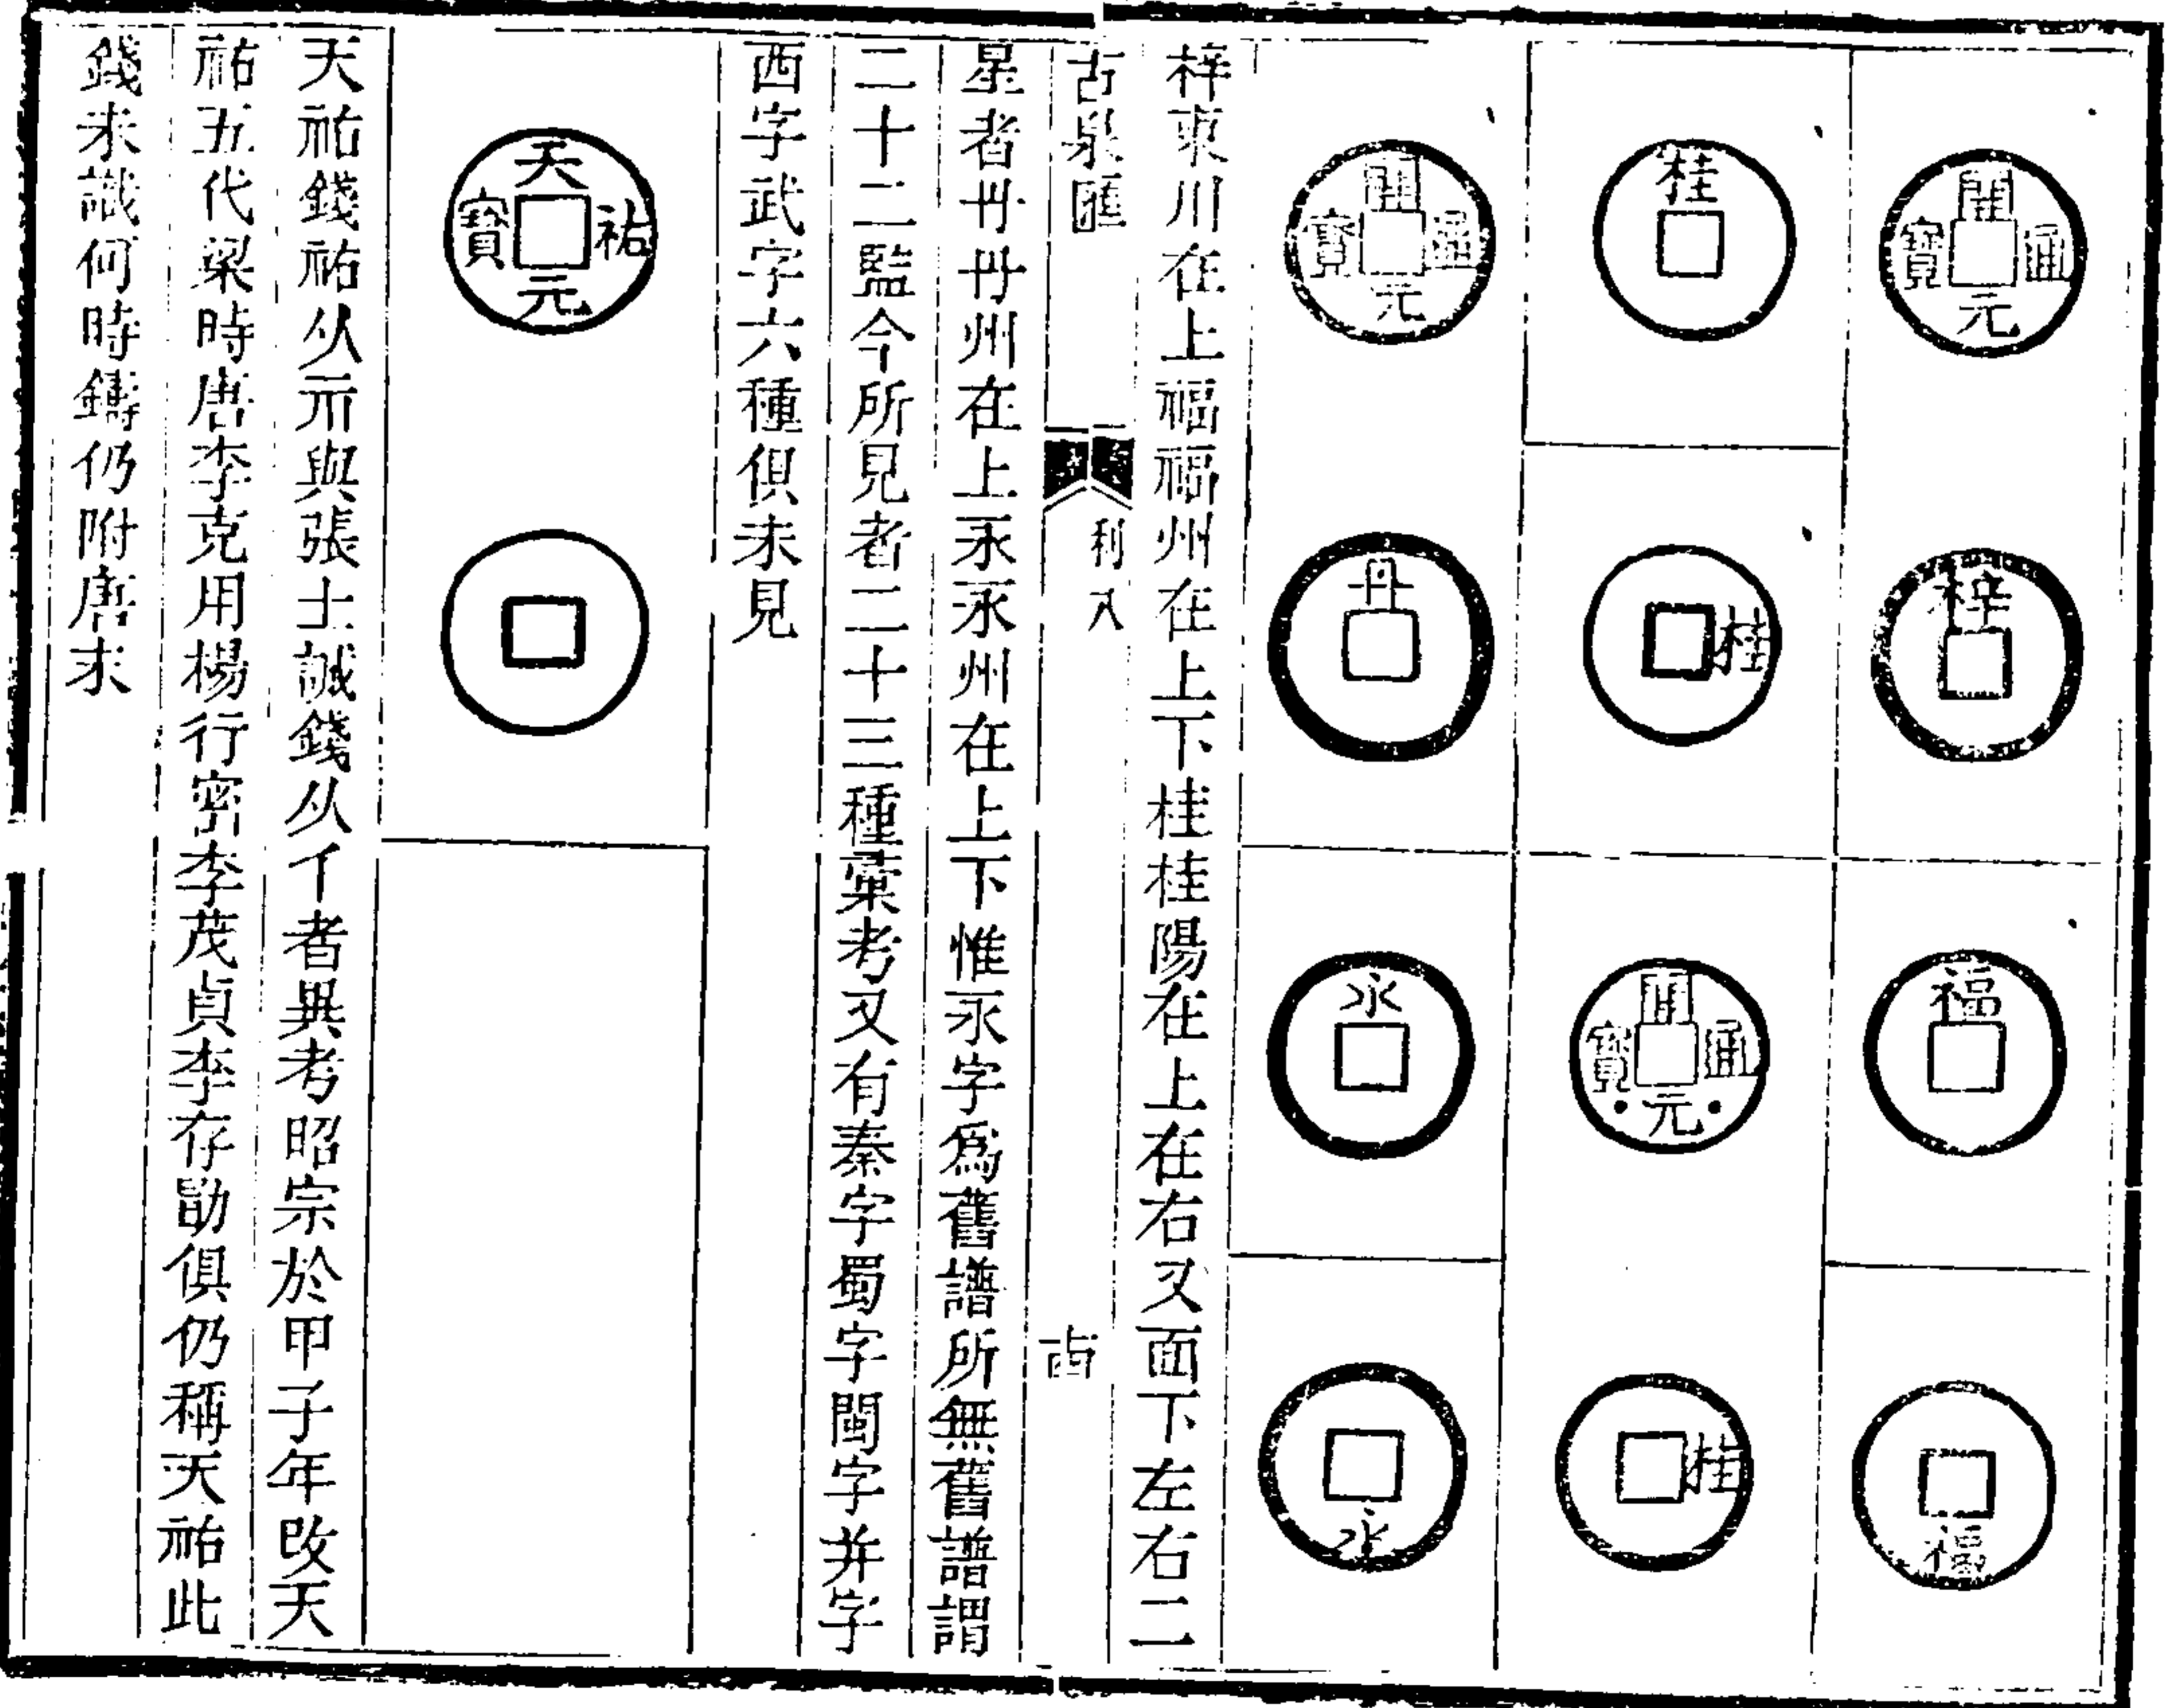 開元通寶
梓
福
福
桂
桂
開元通寶
桂
開元通寶
丹
永
永
梓東川在上福福州在上下桂桂陽在上在右又面下左右二
古泉匯
利八
星者丹丹州在上永永州在上下惟永字爲舊譜所無舊譜謂
二十二監今所見者二十三種彙考又有秦字蜀字閩字并字
西字武字六種俱未見
天祐元寶
天祐錢祐从示與張士誠錢从亻者異考昭宗於甲子年改天
祐五代梁時唐李克用楊行密李茂貞李存勖俱仍稱天祐此
錢未識何時鑄仍附唐末